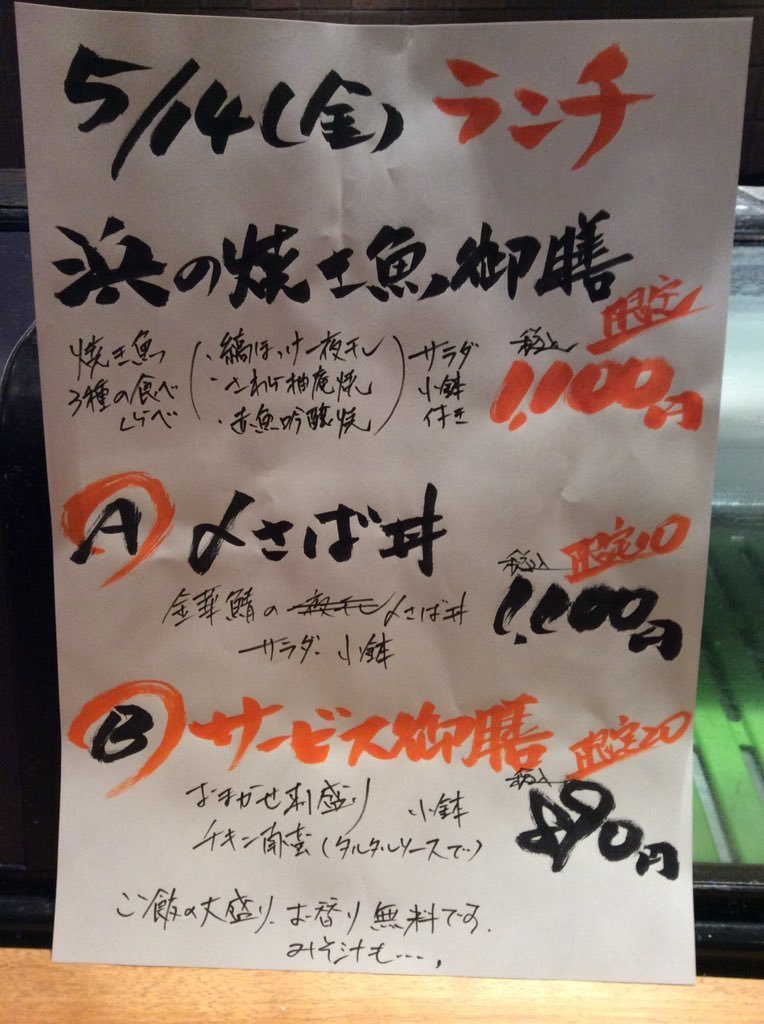 5/14(金) ランチ
浜の焼き魚御膳
限定
焼き魚
3種の食べ
くらべ
・縞ほっけ一夜干し
・さわら柚庵焼
・赤魚吟醸焼
サラダ
小鉢
付き
税込
1,100円
A 〆さば丼
限定10
税込
1,100円
金華鯖の 〆さば丼
サラダ 小鉢
B サービス御膳
限定20
税込
890円
おまかせ刺盛り 小鉢
チキン南蛮(タルタルソースで)
ご飯の大盛り、お香り無料です。
みそ汁も…。